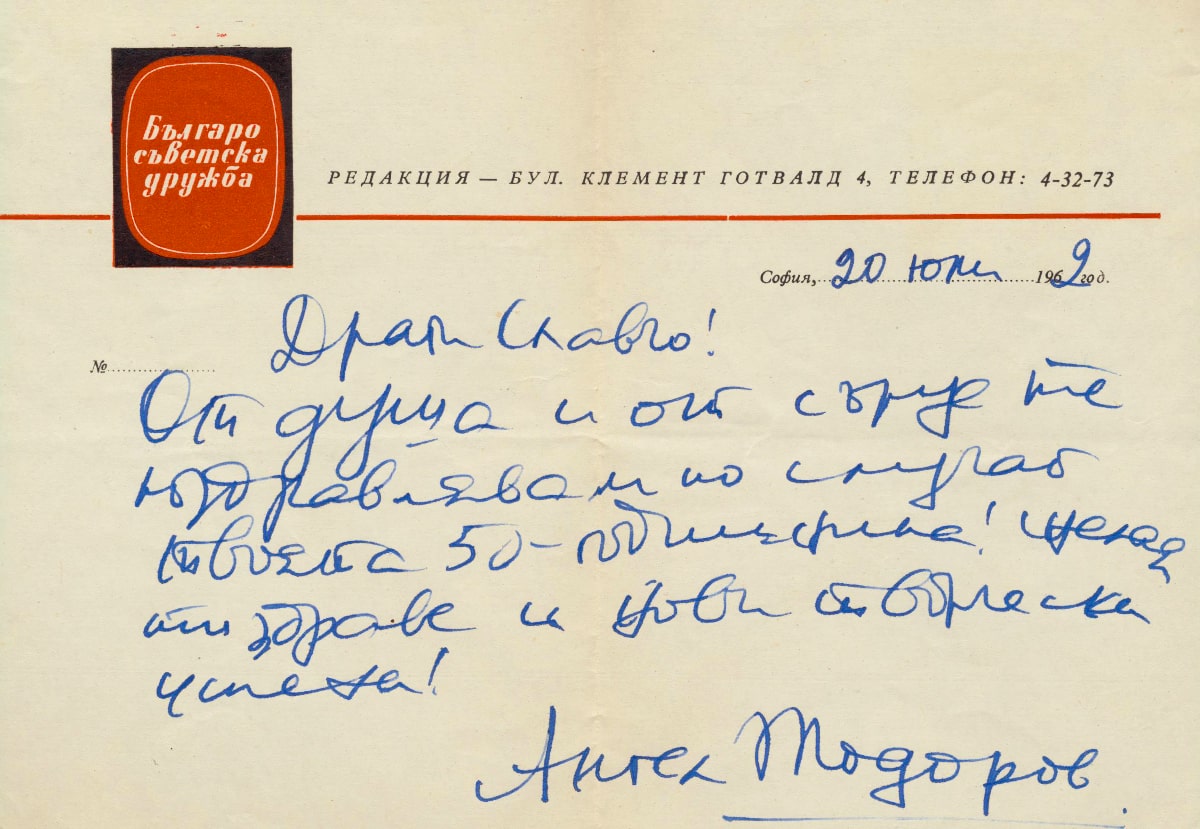 Българо
съветска
дружба
РЕДАКЦИЯ — БУЛ. КЛЕМЕНТ ГОТВАЛД 4, ТЕЛЕФОН: 4-32-73
София, 20 юни 1962 год.
№
Драги Славчо!
От душа и от сърце те
поздравявам по случай
твоята 50-годишнина! Желая
ти здраве и нови творчески
успехи!
Ангел Тодоров